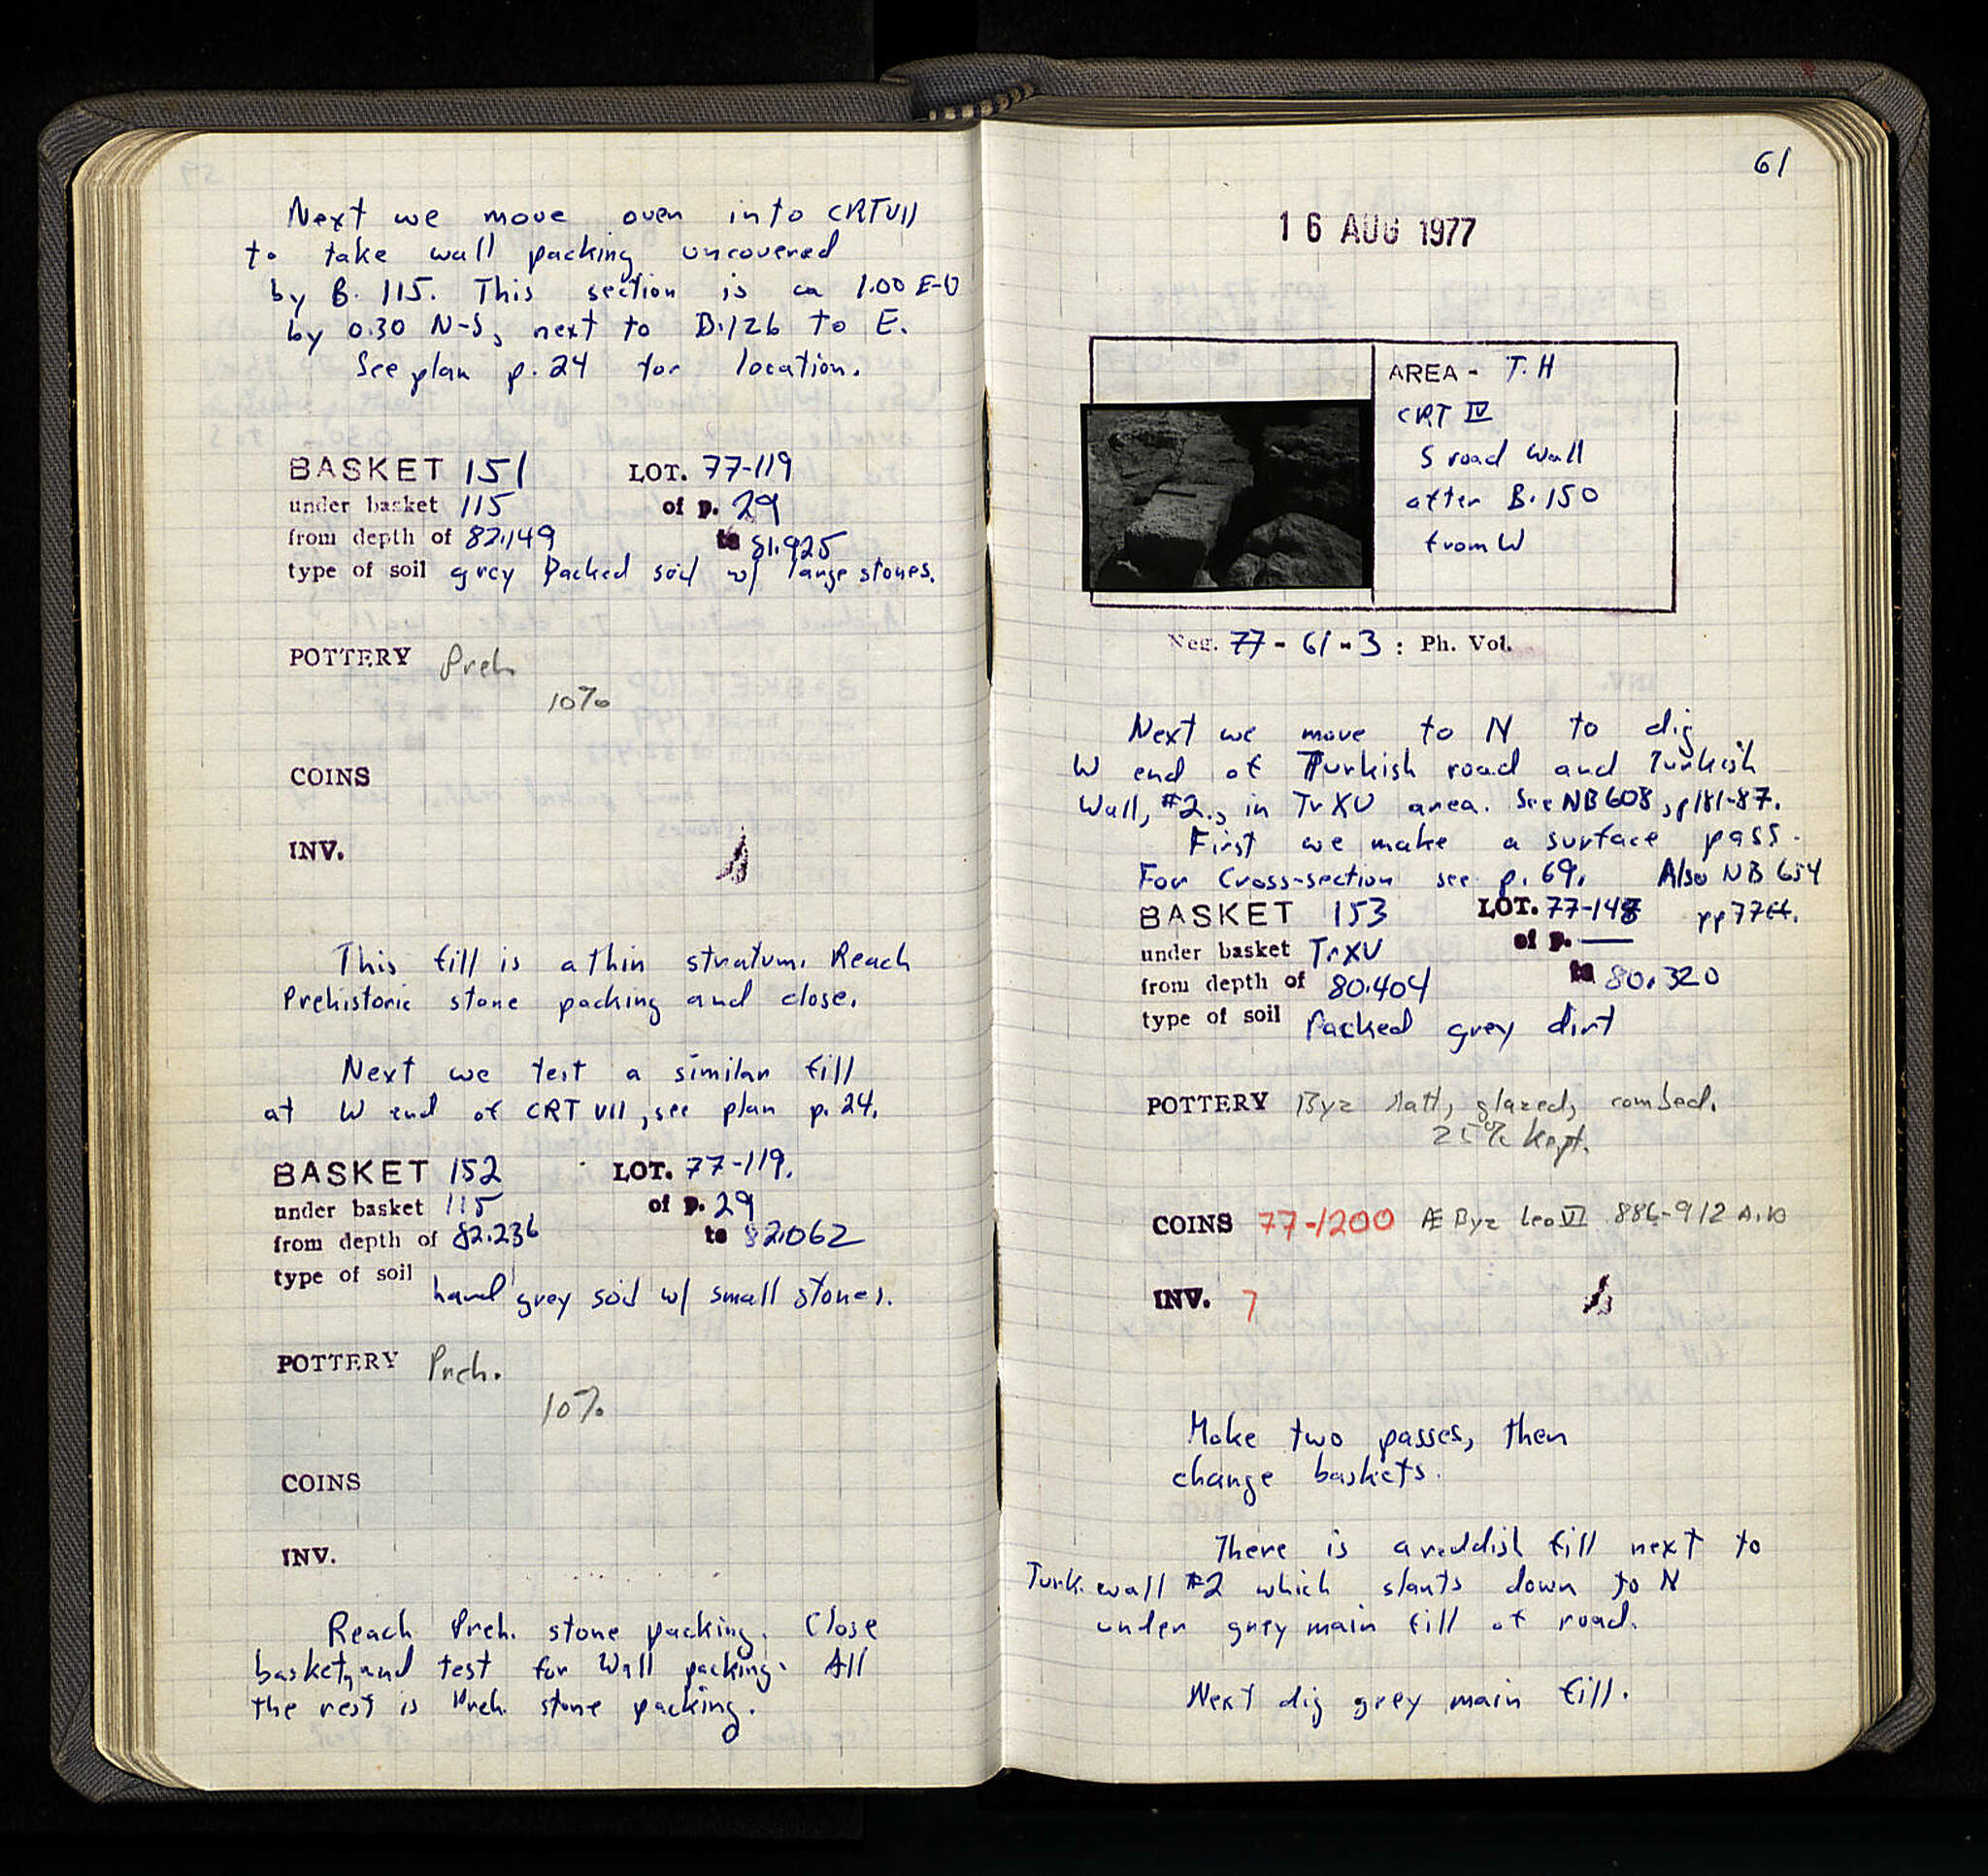 Next we move over into CRTVII
to take wall packing uncovered
by B. 115. This section is ca 1.00 E-W
by 0.30 N-S, next to B.126 to E.
See plan p. 24 for location.
BASKET 151 LOT. 77-119
under basket 115 of p. 29
from depth of 82.149 to 81.925
type of soil grey packed soil w/ large stones.
POTTERY Preh
10%
COINS
INV.
This fill is a thin stratum. Reach
Prehistoric stone packing and close.
Next we test a similar fill
at W end of CRT VII, see plan p. 24.
BASKET 152 LOT. 77-119.
under basket 115 of p. 29
from depth of 82.236 to 82.062
type of soil hard grey soil w/ small stones.
POTTERY Preh.
10%
COINS
INV.
Reach Preh. stone packing. Close
basket, and test for Wall packing. All
the rest is Preh. stone packing.
61
16 AUG 1977
AREA - T.H
CRT IV
S road Wall
after B.150
from W
Neg. 77-61-3 : Ph. Vol.
Next we move to N to dig
W end of Turkish road and Turkish
Wall, #2., in TrXV area. See NB 608, p181-87.
First we make a surface pass.
For Cross-section see p. 69. Also NB 654
pp77ff.
BASKET 153 LOT. 77-148
under basket TrXV of p. —
from depth of 80.404 to 80.320
type of soil Packed grey dirt
POTTERY Byz Matt, glazed, combed.
25% kept.
COINS 77-1200 Æ Byz Leo VI 886-912 A.D
INV. 7
Make two passes, then
change baskets.
There is a reddish fill next to
Turk. wall #2 which slants down to N
under grey main fill of road.
Next dig grey main fill.